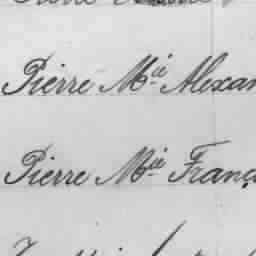 Pierre
Pierre M.ie Alexan
Pierre M.ie Franç